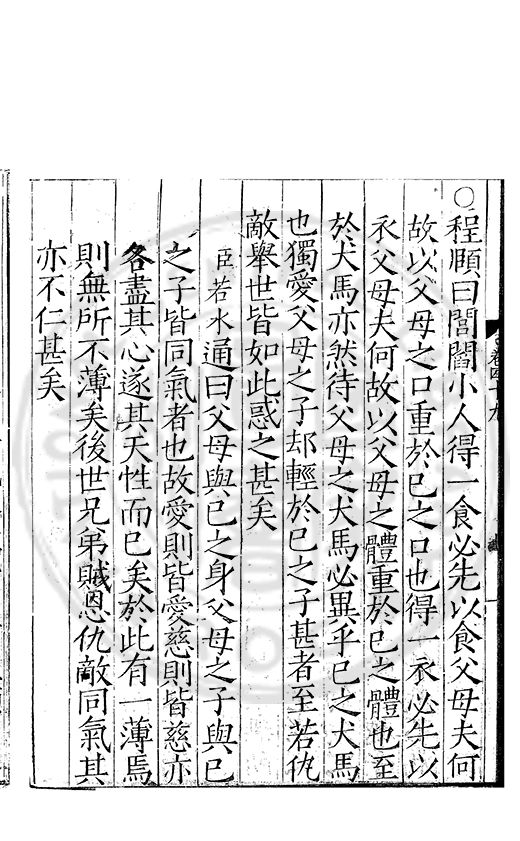 ○程頤曰閭閻小人得一食必先以食父母夫何
故以父母之口重於已之口也得一衣必先以
衣父母夫何故以父母之體重於已之體也至
於犬馬亦然待父母之犬馬必異乎已之犬馬
也獨愛父母之子却輕於已之子甚者至若仇
敵舉世皆如此惑之甚矣
臣若水通曰父母與已之身父母之子與已
之子皆同氣者也故愛則皆愛慈則皆慈亦
各盡其心遂其天性而已矣於此有一薄焉
則無所不薄矣後世兄弟賊恩仇敵同氣其
亦不仁甚矣